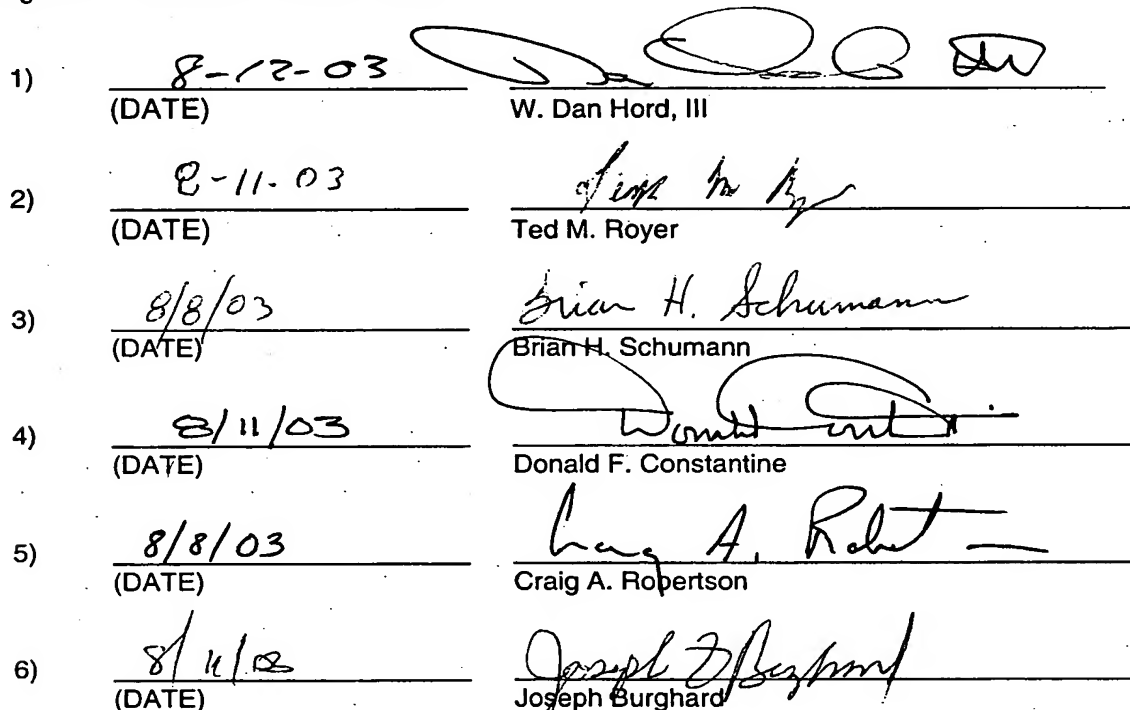 1) 8-12-03
(DATE) W. Dan Hord, III
2) 8-11-03
(DATE) Ted M. Royer
3) 8/8/03 Brian H. Schumann
(DATE) Brian H. Schumann
4) 8/11/03
(DATE) Donald F. Constantine
5) 8/8/03 Craig A. Robert
(DATE) Craig A. Robertson
6) 8/11/03 Joseph Burghard
(DATE) Joseph Burghard